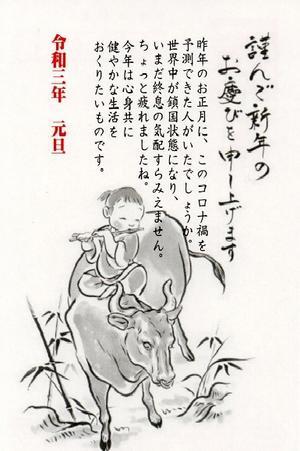 謹んで新年の
お慶びを申し上げます
昨年のお正月に、このコロナ禍を
予測できた人がいたでしょうか。
世界中が鎖国状態になり、
いまだ終息の気配すらみえません。
ちょっと疲れましたね。
今年は心身共に
健やかな生活を
おくりたいものです。
令和三年 元旦